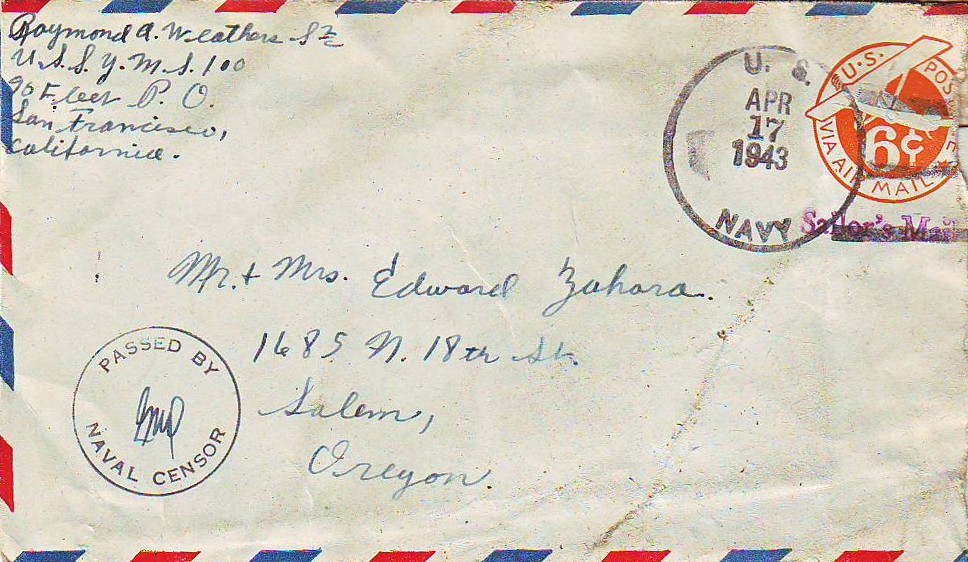 Raymond A. Weathers S 2/c
U.S.S. Y.M.S. 100
℅ Fleet P. O.
San Francisco,
California.
U. S.
APR
17
1943
NAVY
U.S. POS
6¢
VIA AIR MAIL
Sailor's Mail
Mr. + Mrs. Edward Zahara.
1685 N. 18th St.
Salem,
Oregon.
PASSED BY
NAVAL CENSOR